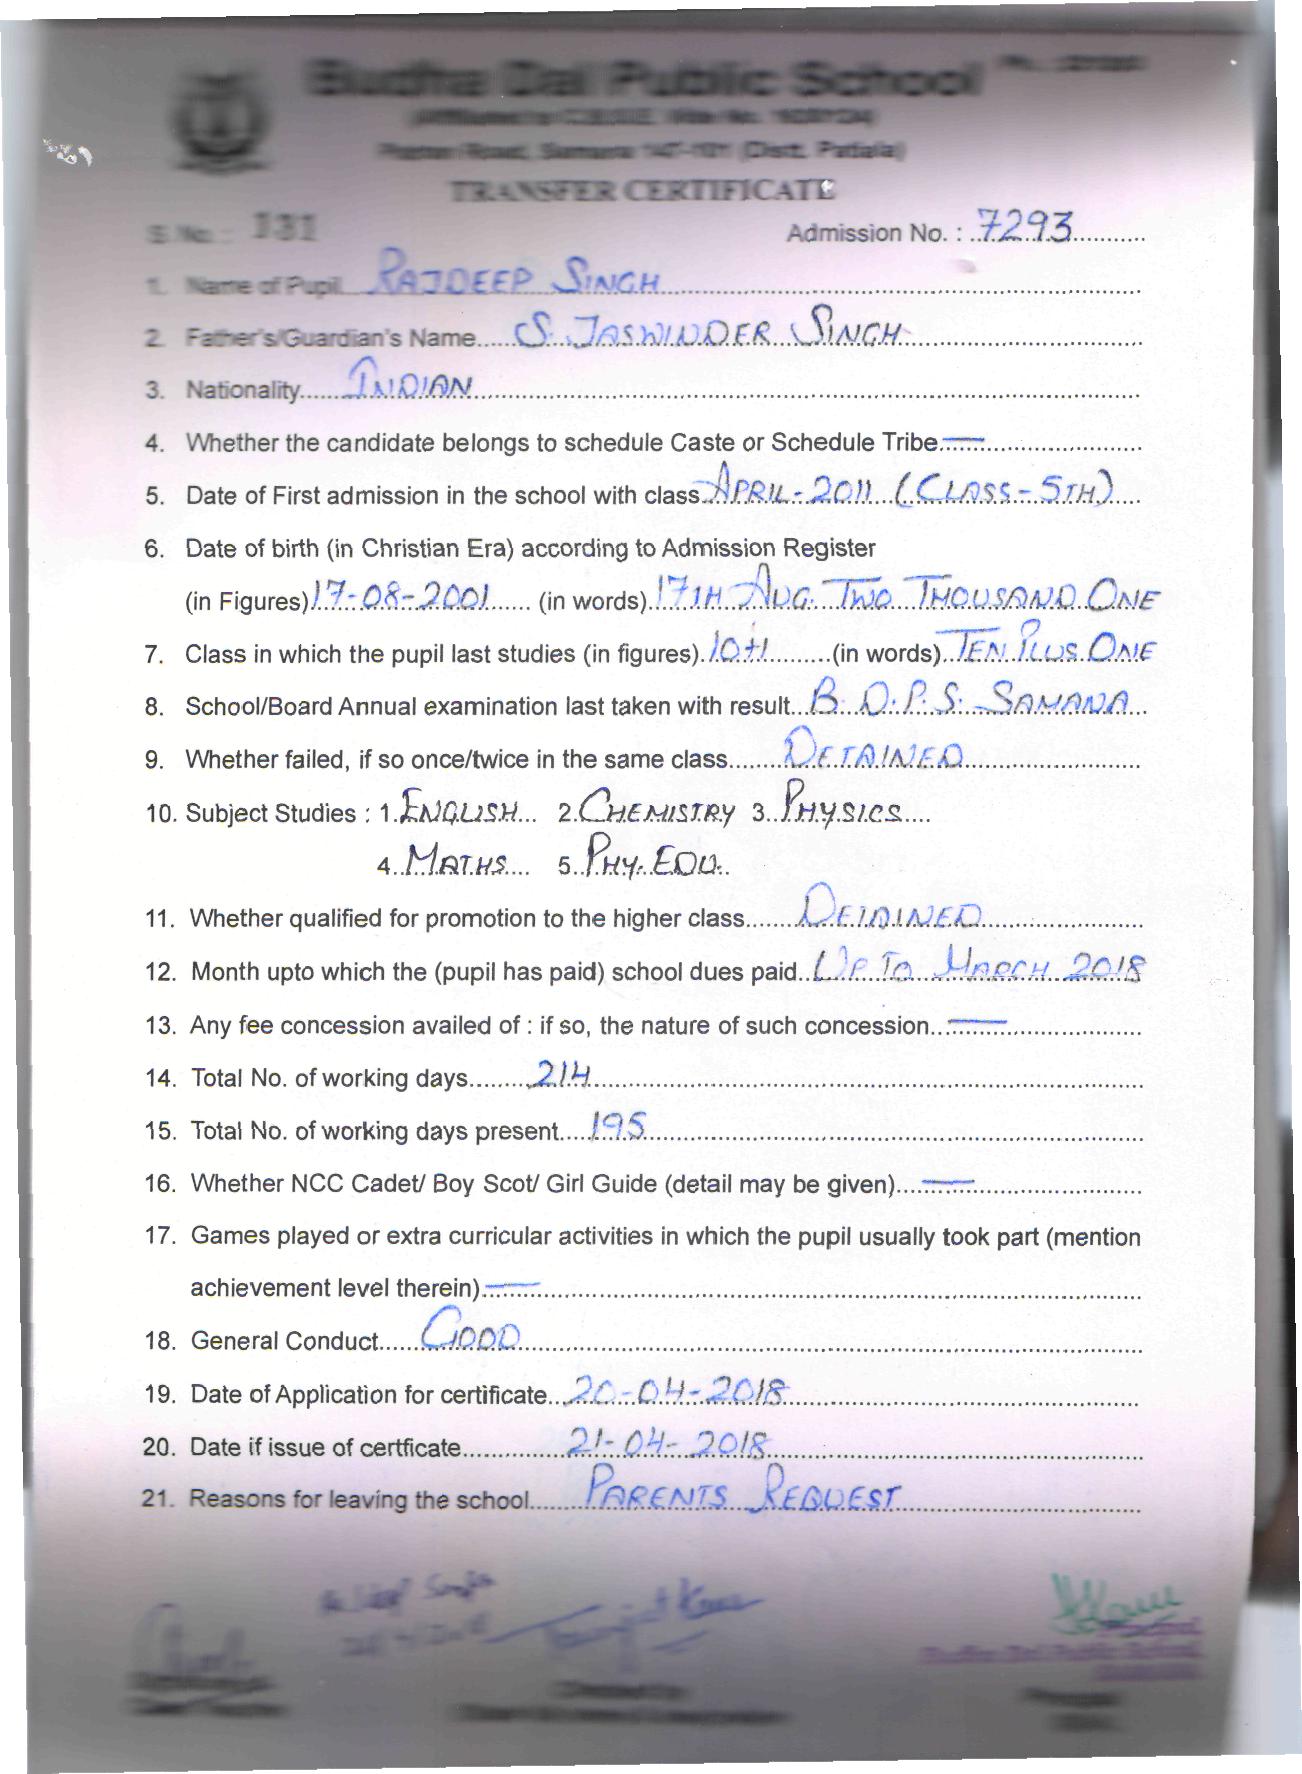 Budha Dal Public School
(Affiliated to C.B.S.E.
Samana 147-101 (Distt. Patiala)
TRANSFER CERTIFICATE
S. No. : 131 Admission No. : 7293
1. Name of Pupil RAJDEEP SINGH
2. Father's/Guardian's Name S. JASWINDER SINGH
3. Nationality INDIAN
4. Whether the candidate belongs to schedule Caste or Schedule Tribe —
5. Date of First admission in the school with class APRIL-2011 (CLASS-5TH)
6. Date of birth (in Christian Era) according to Admission Register
(in Figures) 17-08-2001 (in words) 17TH AUG. TWO THOUSAND ONE
7. Class in which the pupil last studies (in figures) 10+1 (in words) TEN PLUS ONE
8. School/Board Annual examination last taken with result B.D.P.S. SAMANA
9. Whether failed, if so once/twice in the same class DETAINED
10. Subject Studies : 1. ENGLISH 2. CHEMISTRY 3. PHYSICS
4. MATHS 5. PHY. EDU.
11. Whether qualified for promotion to the higher class DETAINED
12. Month upto which the (pupil has paid) school dues paid UP TO MARCH 2018
13. Any fee concession availed of : if so, the nature of such concession —
14. Total No. of working days 214
15. Total No. of working days present 195
16. Whether NCC Cadet/ Boy Scot/ Girl Guide (detail may be given) —
17. Games played or extra curricular activities in which the pupil usually took part (mention
achievement level therein) —
18. General Conduct GOOD
19. Date of Application for certificate 20-04-2018
20. Date if issue of certficate 21-04-2018
21. Reasons for leaving the school PARENTS REQUEST
Budha Dal Public School